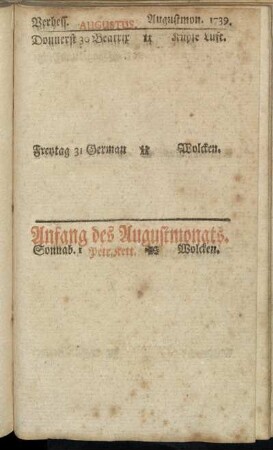 Verbess. AUGUSTUS. Augustmon. 1739.
Donnerst 30 Beatrix ♊ Kühle Luft.
Freytag 31 German Wolcken.
Anfang des Augustmonats.
Sonnab. 1 Petr. Kett. Wolcken.